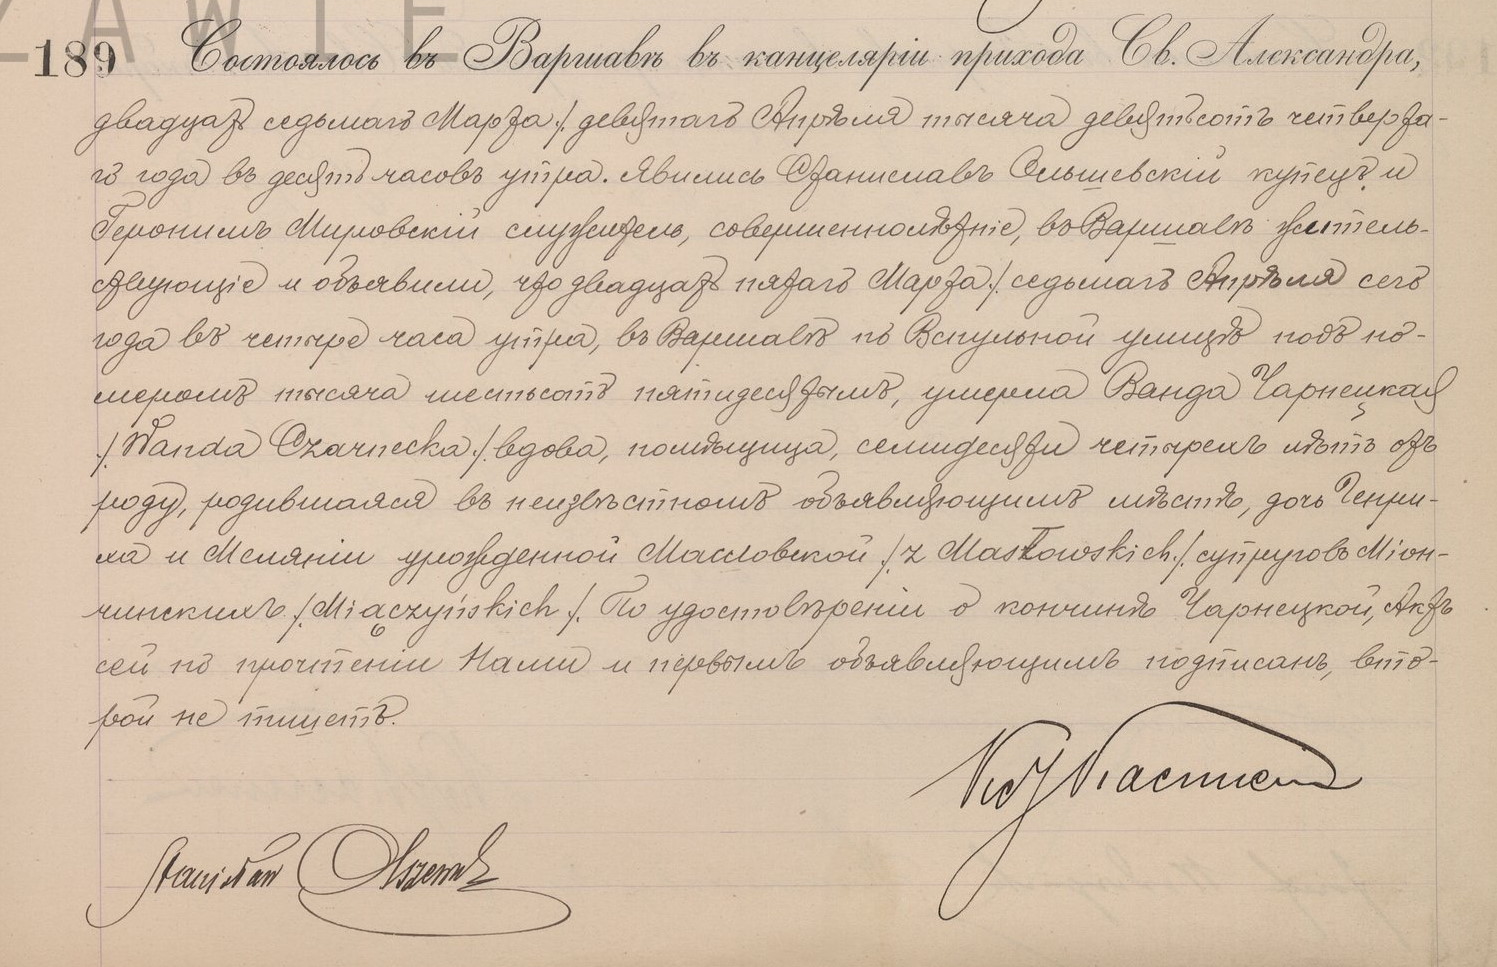 ZAWIE
189 Состоялось въ Варшавѣ въ канцеляріи прихода Св. Александра,
двадцать седьмаго Марта /. девятаго Апрѣля тысяча девятьсотъ четверта-
го года въ десять часовъ утра. Явились Станиславъ Ольшевскій купецъ и
Геронимъ Мировскій служитель, совершеннолѣтніе, въ Варшавѣ житель-
ствующіе и объявили, что двадцать пятаго Марта /. седьмаго Апрѣля сего
года въ четыре часа утра, въ Варшавѣ по Вспульной улицѣ подъ но-
меромъ тысяча шестьсотъ пятидесятымъ, умерла Ванда Чарнецкая
/. Wanda Czarnecka /. вдова, помѣщица, семидесяти четырехъ лѣтъ отъ
роду, родившаяся въ неизвѣстномъ объявляющимъ мѣстѣ, дочь Генри-
ха и Меляніи урожденной Масловской /. z Masłowskich /. супруговъ Міон-
чинскихъ /. Miączyńskich /. По удостовѣреніи о кончинѣ Чарнецкой, Актъ
сей по прочтеніи Нами и первымъ объявляющимъ подписанъ, вто-
рой не пишетъ.
Stanisław Olszewski